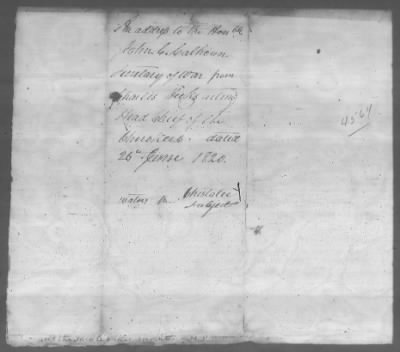 An address to the Honble
John C. Calhoun
Secretary of War from
Charles Hicks acting
Head Chief of the
Cherokees. dated
26th June 1820.
4564
on
subject